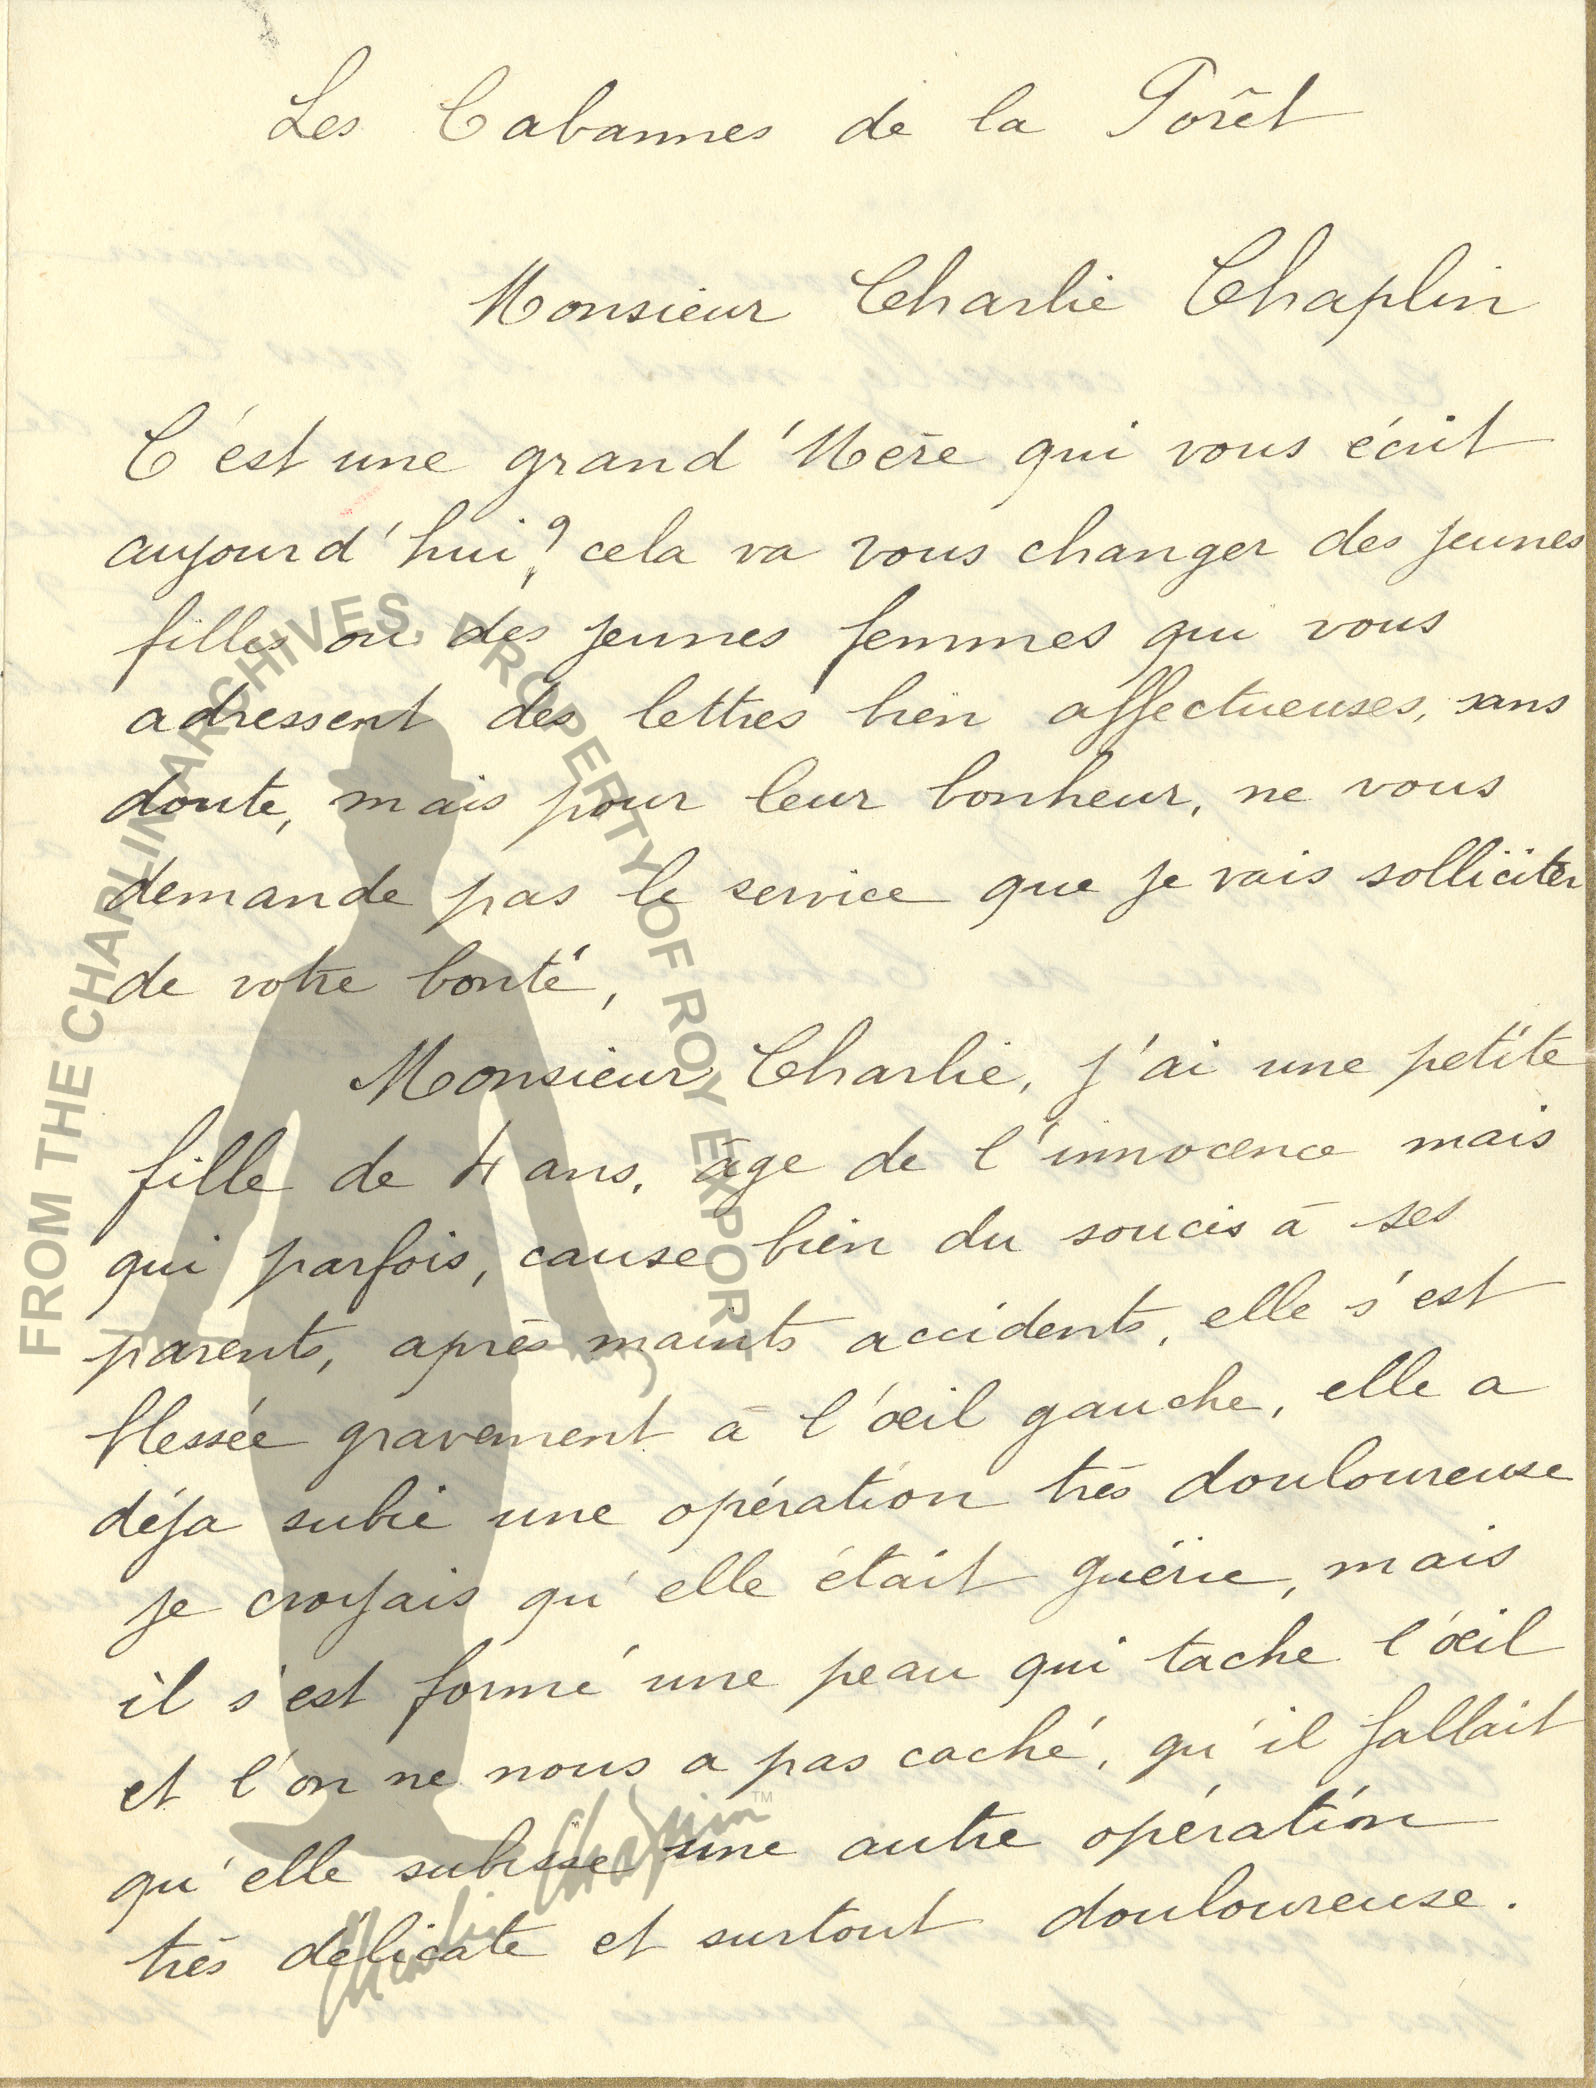 Les Cabannes de la Forêt
Monsieur Charlie Chaplin
C'est une grand'Mère qui vous écrit
aujourd'hui? cela va vous changer des jeunes
filles ou des jeunes femmes qui vous
adressent des lettres bien affectueuses, sans
doute, mais pour leur bonheur, ne vous
demande pas le service que je vais solliciter
de votre bonté,
Monsieur Charlie, j'ai une petite
fille de 4 ans, âge de l'innocence mais
qui parfois, cause bien du soucis à ses
parents, après maints accidents, elle s'est
blessée gravement à l'œil gauche, elle a
déja subie une opération très douloureuse
je croyais qu'elle était guérie, mais
il s'est formé une peau qui tache l'œil
et l'on ne nous a pas caché, qu'il fallait
qu'elle subisse une autre opération
très délicate et surtout douloureuse.
FROM THE CHAPLIN ARCHIVES, PROPERTY OF ROY EXPORT
Charlie Chaplin™